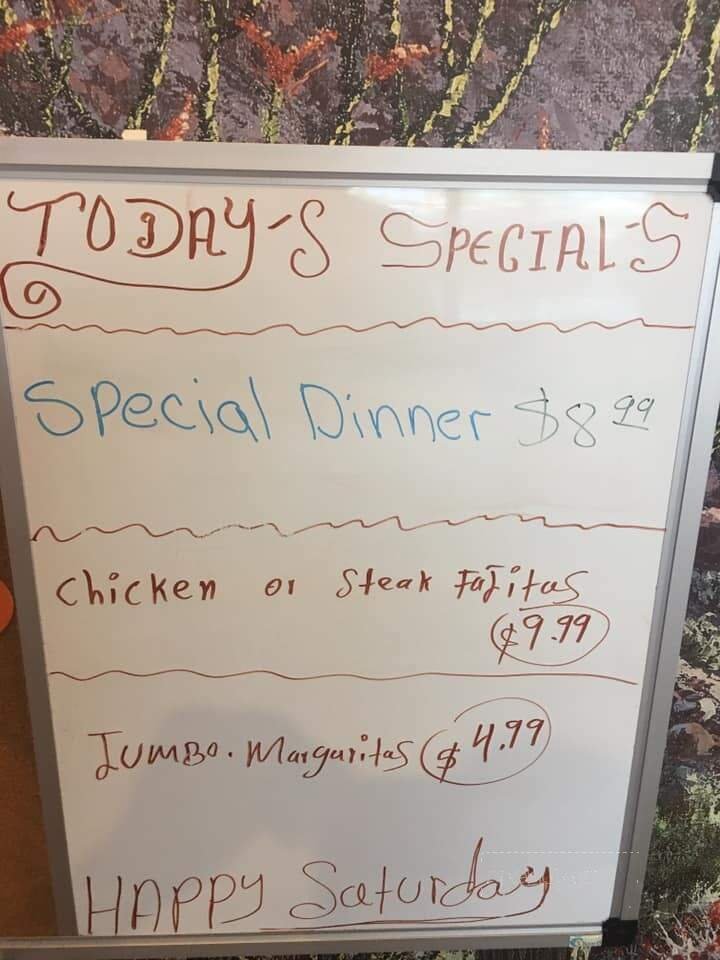 TODAY'S SPECIAL'S
Special Dinner $8 99
chicken or Steak Fajitas
$9.99
Jumbo. Margaritas $4.99
HAPPY Saturday